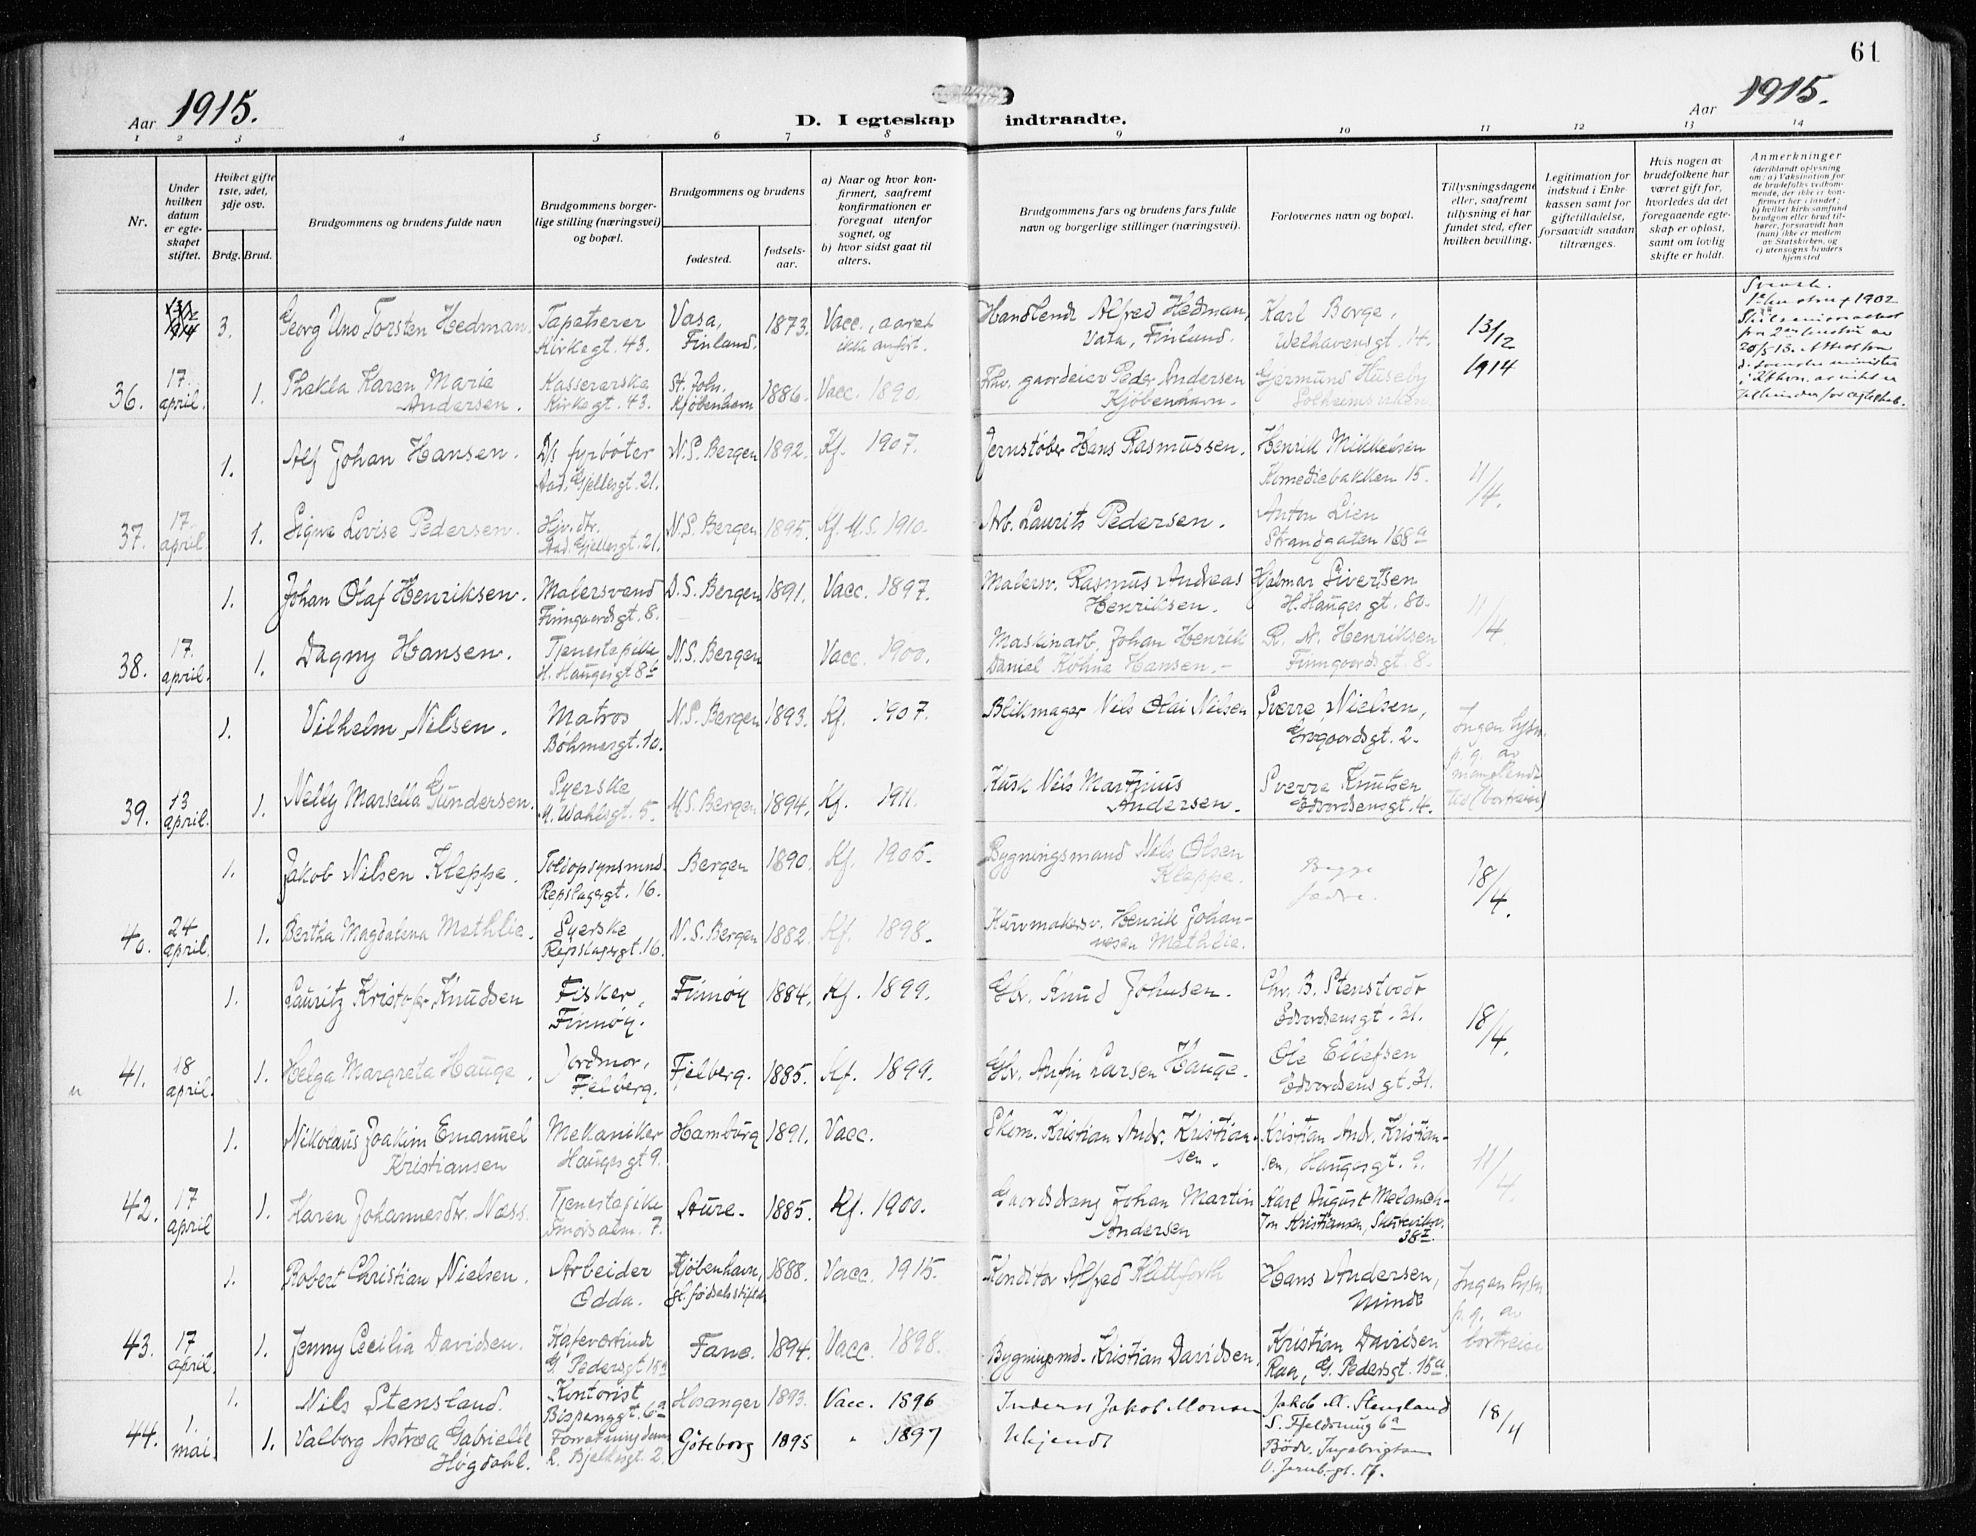 61
Aar 1915.
D. I egteskap indtraadte.
Aar 1915.
1 2 3 4 5 6 7 8 9 10 11 12 13 14
Nr.
Under hvilken datum er egteskapet stiftet.
Hviket gifte 1ste, 2det, 3dje osv.
Brdg. Brud.
Brudgommens og brudens fulde navn
Brudgommens borgerlige stilling (næringsvei) og bopæl.
Brudgommens og brudens
fødested.
fødselsaar.
a) Naar og hvor konfirmert, saafremt konfirmationen er foregaat utenfor sognet, og
b) hvor sidst gaat til alters.
Brudgommens fars og brudens fars fulde navn og borgerlige stillinger (næringsvei).
Forlovernes navn og bopæl.
Tillysningsdagene eller, saafremt tillysning ei har fundet sted, efter hvilken bevilling.
Legitimation for indskud i Enkekassen samt for giftetilladelse, forsaavidt saadan tiltrænges.
Hvis nogen av brudefolkene har været gift før, hvorledes da det foregaaende egteskap er opløst, samt om lovlig skifte er holdt.
Anmerkninger
(deriblandt oplysning om: a) Vaksination for de brudefolks vedkommende, der ikke er konfirmert her i landet; b) hvilket kirkesamfund brudgom eller brud tilhører, forsaavidt han (hun) ikke er medlem av Statskirken, og c) utensogns bruders hjemsted
3. Georg Uno Torsten Hedman. Tapetserer Kirkegt. 43. Vasa, Finland. 1873. Vacc., aaret ikke anført. Handlende Alfred Hedman, Vasa, Finland. Karl Borge, Welhavensgt. 14. 13/12 1914
36. 17. april. 1. Thekla Karen Marie Andersen. Kassererske Kirkegt. 43. St. Joh. Kjøbenhavn 1886. Vacc. 1890. Fhv. gaardeier Peder Andersen Kjøbenhavn. Gjermund Huseby Solheimsviken.
1. Alf Johan Hansen. D/s fyrbøter Aad. Gjellesgt. 21. N.S. Bergen 1892. Kf. 1907. Jernstøber Hans Rasmussen. Henrik Mikkelsen Komediebakken 15. 11/4.
37. 17. april 1. Signe Lovise Pedersen. Hjv. dtr. Aad. Gjellesgt. 21. N.S. Bergen 1895. Kf. N.S. 1910. Arb. Laurits Pedersen. Anton Lien Strandgaten 168a
1. Johan Olaf Henriksen. Malersvend Finngaardsgt. 8. D.S. Bergen 1891. Vacc. 1897. Malersv. Rasmus Andreas Henriksen. Hjalmar Sivertsen H. Hauges gt. 80. 11/4.
38. 17. april. 1. Dagny Hansen. Tjenestepike H. Haugesgt 8b N.S. Bergen Vacc. 1900. Maskinarb. Johan Henrik Daniel Køhne Hansen. R. A. Henriksen Finngaardsgt. 8.
1. Vilhelm Nilsen. Matros Bøhmergt. 10. N.S. Bergen 1893. Kf. 1907. Blikmager Nils Olai Nilsen Sverre Nielsen, gt. 2. Ingen lysn. p.g. av manglende tid (bortreise)
39. 13 april. 1. Nelly Marsella Gundersen. Syerske M. Wahlsgt. 5. N.S. Bergen 1894. Kf. 1911. Kusk Nils Martinius Andersen. Sverre Knutsen Edvardsensgt. 4.
1. Jakob Nilsen Kleppe. Toldopsynsmand. Repslagergt. 16. Bergen 1890. Kf. 1905. Bygningsmand Nils Olsen Kleppe. Begge fædre. 18/4.
40. 24 april. 1. Bertha Magdalena Methlie. Syerske Repslagergt. 16. N.S. Bergen 1882. Kf. 1898. Kurvmakersv. Henrik Johannesen Methlie.
1. Lauritz Kristofer Knudsen Fisker, Finnøy. Finnøy 1884. Kf. 1899. Gbr. Knud Johnsen. Chr. B. Stenstvedt Edvardsensgt. 31. 18/4.
41. 18 april. 1. Helga Margreta Hauge. Jordmor, Fjelberg. Fjelberg. 1885. Kf. 1899. Gbr. Anfin Larsen Hauge. Ole Ellefsen Edvardsens gt. 31.
1. Nikolaus Joakim Emanuel Kristiansen Mekaniker Haugesgt 9. Hamburg 1891. Vacc. Skom. Kristian Andr. Kristiansen. Kristian Andr. Kristiansen, Haugesgt. 9. 11/4.
42. 17 april 1. Karen Johannesdtr. Næss. Tjenestepike 7. Aure. 1885. Kf. 1900. Gaardsdreng Johan Martin Andersen Karl August Melanchton Kristiansen, 38
1. Robert Christian Nielsen. Arbeider Odda. Kjøbenhavn, fødselsstiftelse 1888. Vacc. 1915. Konditor Alfred Klettforth Hans Andersen, Minde Ingen lysn p.g. av bortreise
43. 17 april. 1. Jenny Cecilia Davidsen. Kafeværtinde G. Pedersgt 15a Fane. 1894. Vacc. 1898. Bygningsmd. Kristian Davidsen. Kristian Davidsen Raa, G. Pedersgt. 15a
1. Nils Stensland. Kontorist Bispenggt. 6a Hosanger 1893. Vacc. 1896 Inderst Jakob Monsen Jakob M. Stensland 6a 18/4
44. 1. mai. 1. Valborg Astræa Gabrielle Høgdahl. R. Bjelkesgt. 2. Göteborg 1895 " 1897 Ukjendt